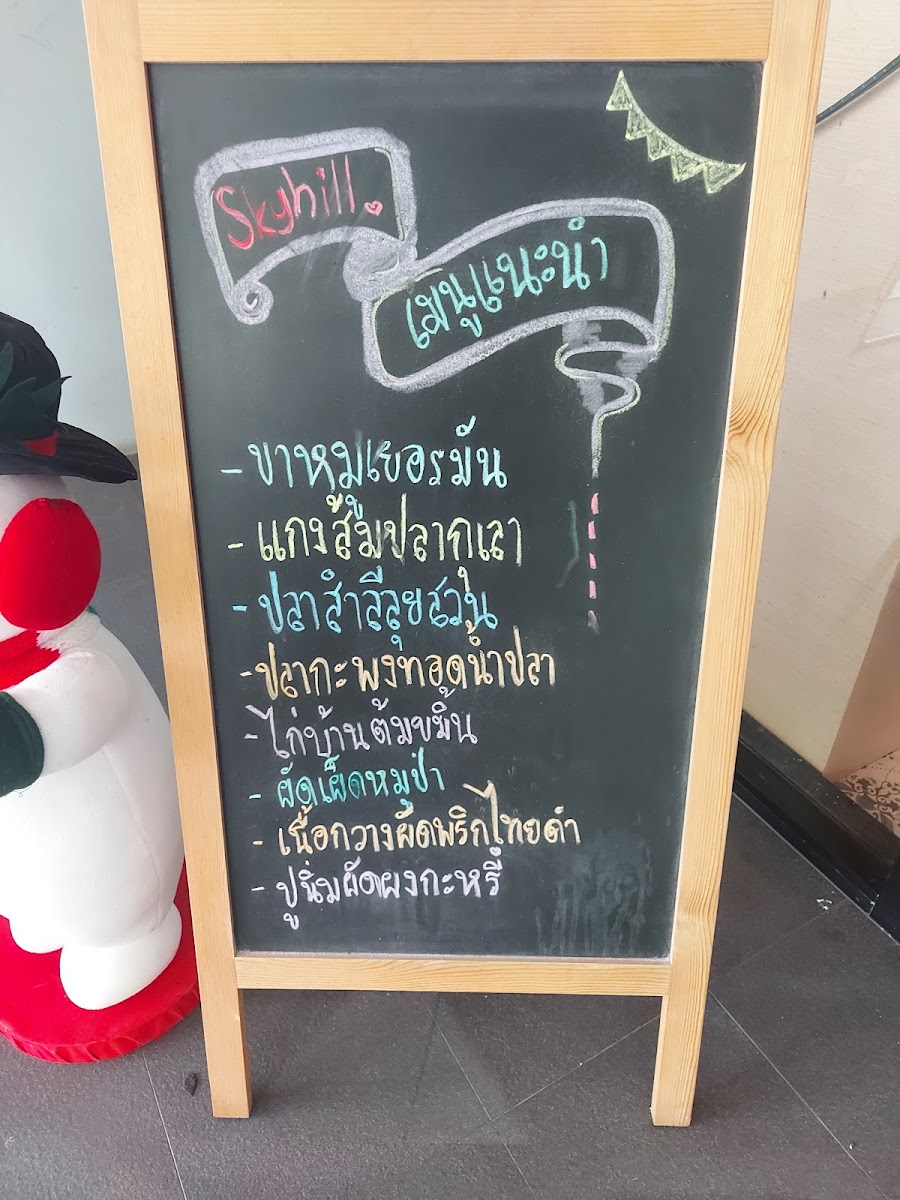 Skyhill
เมนูแนะนำ
- ขาหมูเยอรมัน
- แกงส้มปลากุเลา
- ปลาสำลีลุยสวน
- ปลากะพงทอดน้ำปลา
- ไก่บ้านต้มขมิ้น
- ผัดเผ็ดหมูป่า
- เนื้อกวางผัดพริกไทยดำ
- ปูนิ่มผัดผงกะหรี่